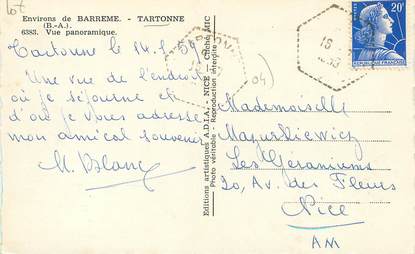 lot
Environs de BARREME. - TARTONNE
(B.-A.)
6383. Vue panoramique.
Tartonne le 14.8.59
Une vue de l'endroit
où je séjourne et
d'où je vous adresse
mon amical souvenir
M. Blanc
Editions artistiques A.D.I.A. - NICE - Cliché MIC
Photo véritable - Reproduction interdite
04)
20F
REPUBLIQUE FRANÇAISE
Mademoiselle
Mazurkiewicz
Les Geraniums
20, Av. des Fleurs
Nice
AM